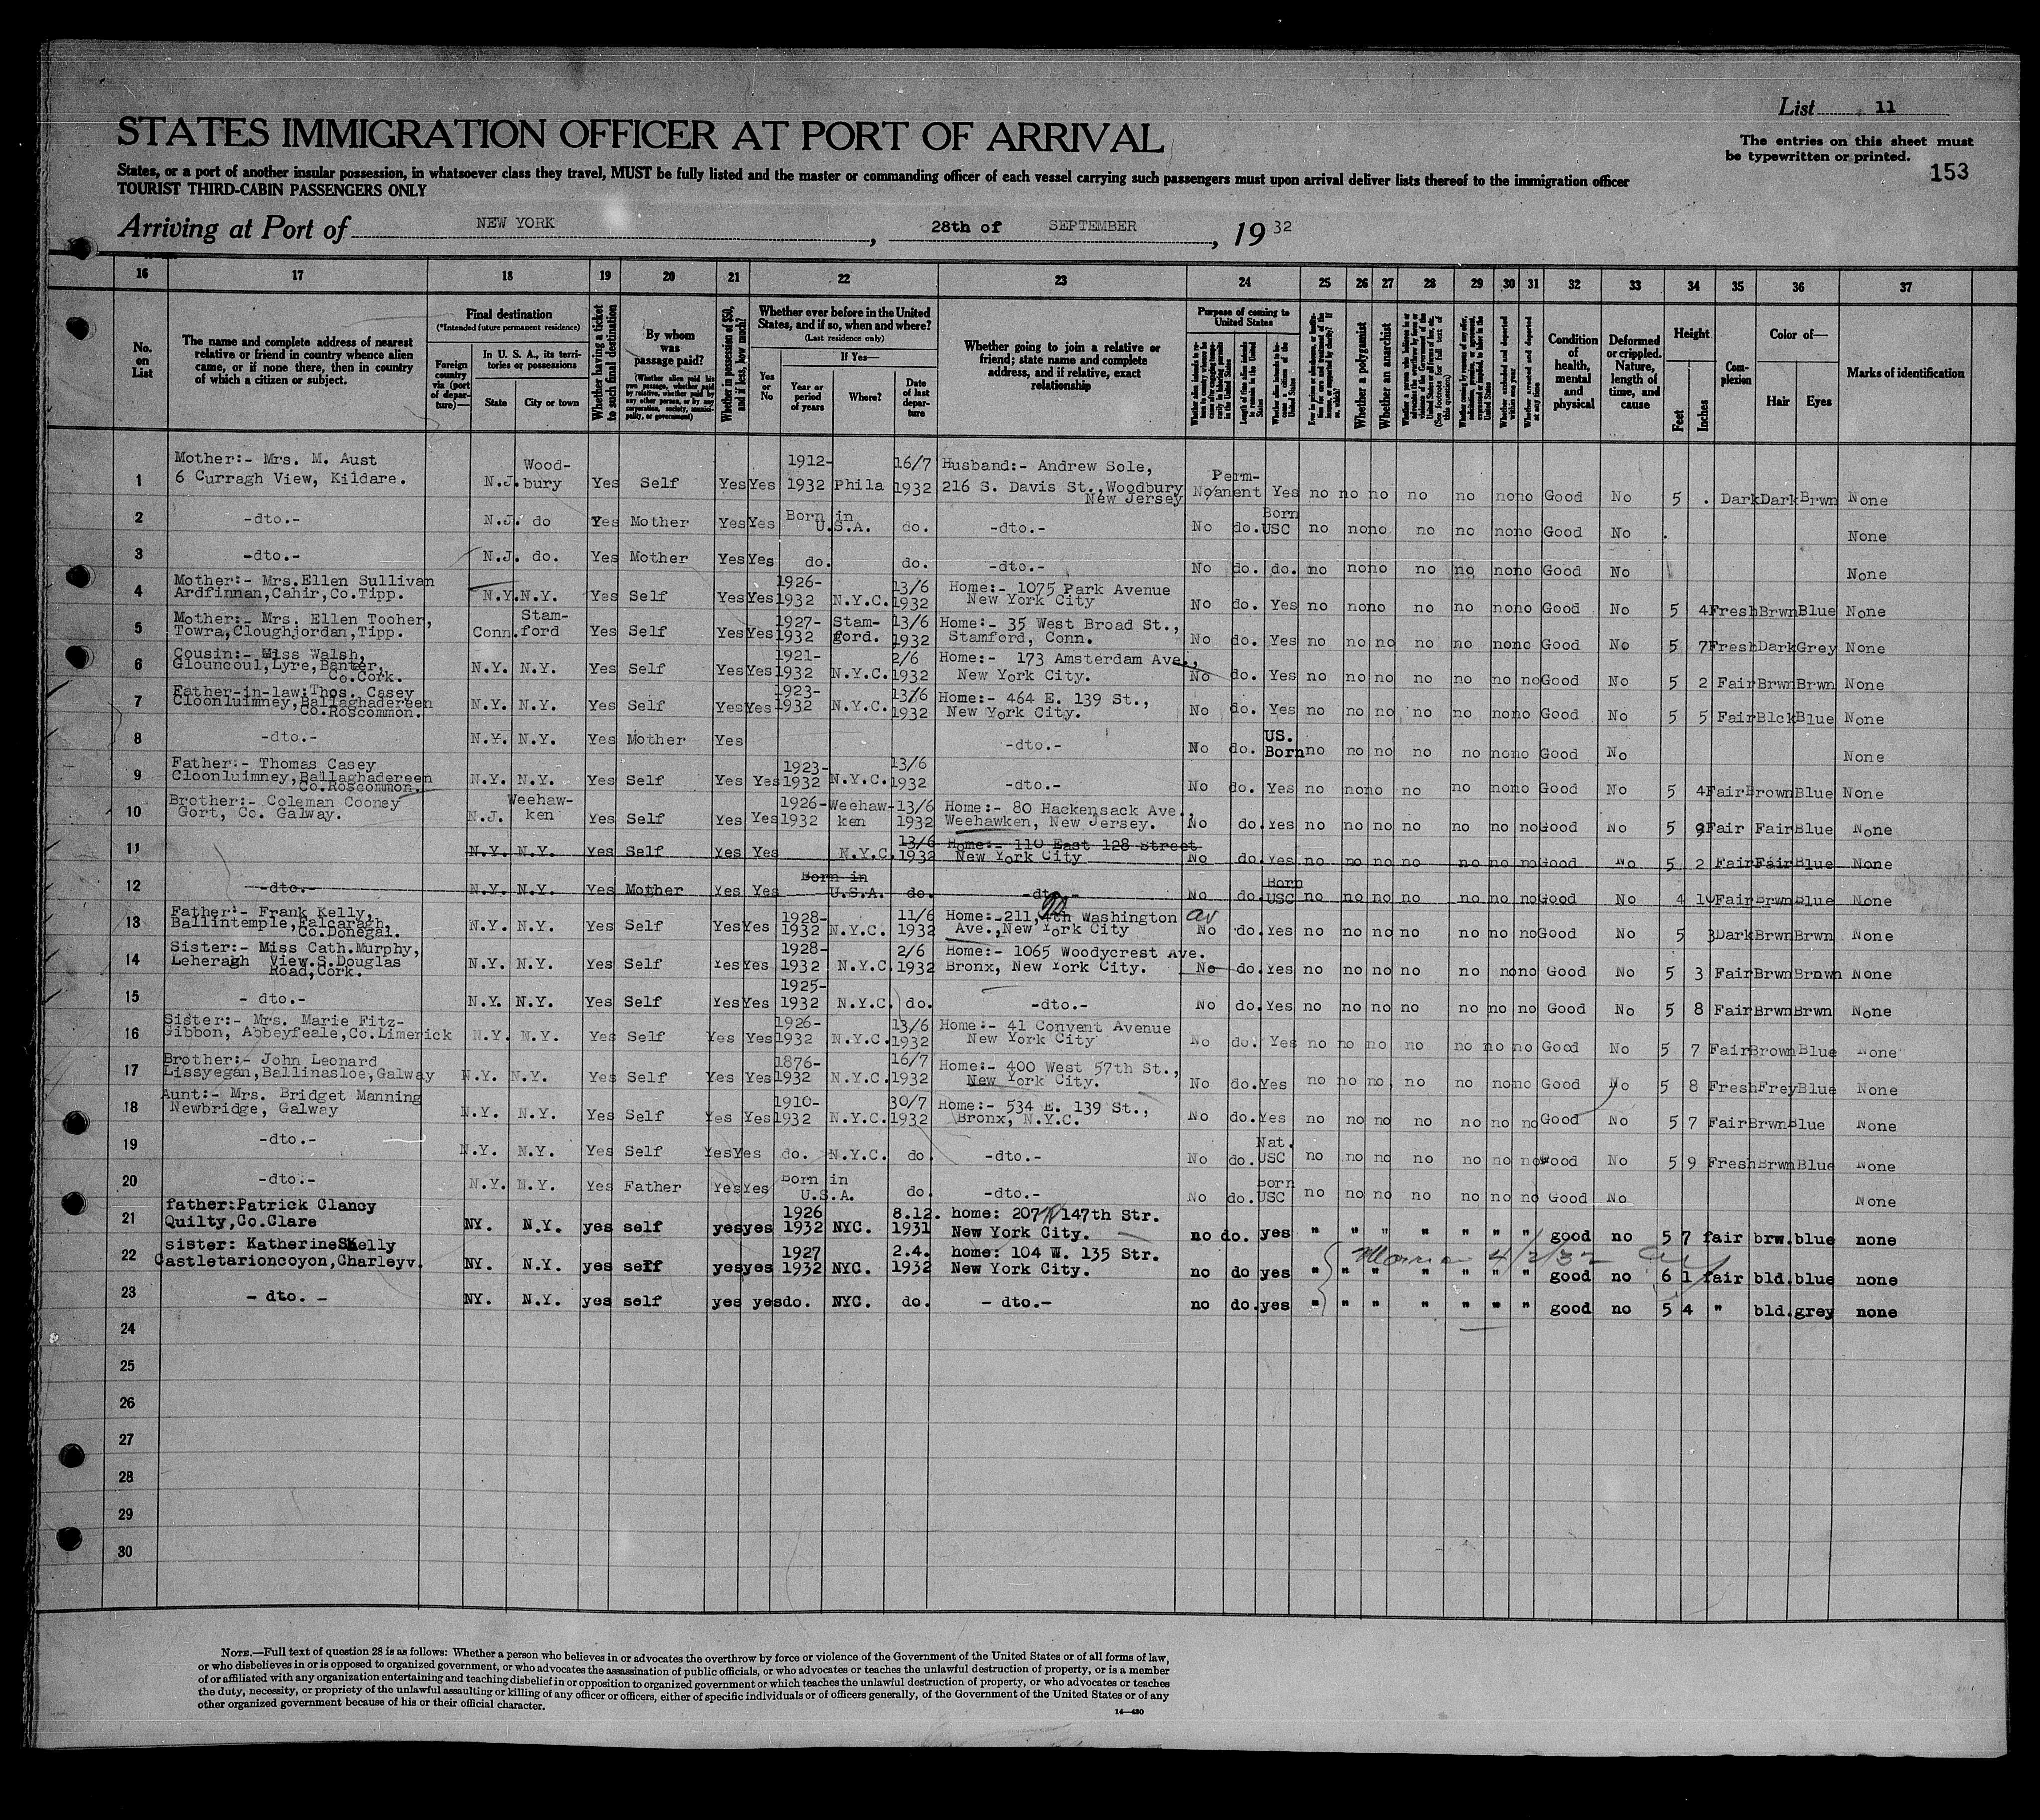 List 11
STATES IMMIGRATION OFFICER AT PORT OF ARRIVAL
The entries on this sheet must
be typewritten or printed.
153
States, or a port of another insular possession, in whatsoever class they travel, MUST be fully listed and the master or commanding officer of each vessel carrying such passengers must upon arrival deliver lists thereof to the immigration officer
TOURIST THIRD-CABIN PASSENGERS ONLY
Arriving at Port of NEW YORK, 28th of SEPTEMBER, 19 32
16 17 18 19 20 21 22 23 24 25 26 27 28 29 30 31 32 33 34 35 36 37
No. on List
The name and complete address of nearest
relative or friend in country whence alien
came, or if none there, then in country
of which a citizen or subject.
Final destination
(*Intended future permanent residence)
Foreign country via (port of departure)—
In U. S. A., its territories or possessions
State
City or town
Whether having a ticket to such final destination
By whom was passage paid?
(Whether alien paid his own passage, whether paid by relative, whether paid by any other person, or by any corporation, society, municipality, or government)
Whether in possession of $50, and if less, how much?
Whether ever before in the United States, and if so, when and where?
(Last residence only)
Yes or No
If Yes—
Year or period of years
Where?
Date of last departure
Whether going to join a relative or
friend; state name and complete
address, and if relative, exact
relationship
Purpose of coming to United States
Length of time alien intends to remain in the United States
Whether alien intends to become a citizen of the United States
Whether a polygamist
Whether an anarchist
(See footnote for full text of this question)
Whether arrested and deported at any time
Condition of health, mental and physical
Deformed or crippled. Nature, length of time, and cause
Height
Feet
Inches
Complexion
Color of—
Hair
Eyes
Marks of identification
1 Mother:- Mrs. M. Aust
6 Curragh View, Kildare. N.J. Wood-bury Yes Self Yes Yes 1912-1932 Phila 16/7 1932 Husband:- Andrew Sole,
216 S. Davis St., Woodbury
New Jersey No Perm-anent Yes no no no no no no no Good No 5 . Dark Dark Brwn None
2 -dto.- N.J. do Yes Mother Yes Yes Born in U.S.A. do. -dto.- No do. Born USC no no no no no no no Good No None
3 -dto.- N.J. do. Yes Mother Yes Yes do. do. -dto.- No do. do. no no no no no no no Good No None
4 Mother:- Mrs.Ellen Sullivan
Ardfinnan,Cahir,Co.Tipp. N.Y. N.Y. Yes Self Yes Yes 1926-1932 N.Y.C. 13/6 1932 Home:- 1075 Park Avenue
New York City No do. Yes no no no no no no no Good No 5 4 Fresh Brwn Blue None
5 Mother:- Mrs. Ellen Tooher,
Towra,Cloughjordan,Tipp. Conn. Stam-ford Yes Self Yes Yes 1927-1932 Stam-ford. 13/6 1932 Home:- 35 West Broad St.,
Stamford, Conn. No do. Yes no no no no no no no Good No 5 7 Fresh Dark Grey None
6 Cousin:- Miss Walsh,
Glouncoul,Lyre,Banter,
Co.Cork. N.Y. N.Y. Yes Self Yes Yes 1921-1932 N.Y.C. 2/6 1932 Home:- 173 Amsterdam Ave.,
New York City. No do. Yes no no no no no no no Good No 5 2 Fair Brwn Brwn None
7 Father-in-law:Thos. Casey
Cloonluimney,Ballaghadereen
Co.Roscommon. N.Y. N.Y. Yes Self Yes Yes 1923-1932 N.Y.C. 13/6 1932 Home:- 464 E. 139 St.,
New York City. No do. Yes no no no no no no no Good No 5 5 Fair Blck Blue None
8 -dto.- N.Y. N.Y. Yes Mother Yes -dto.- No do. US. Born no no no no no no no Good No None
9 Father:- Thomas Casey
Cloonluimney,Ballaghadereen
Co.Roscommon. N.Y. N.Y. Yes Self Yes Yes 1923-1932 N.Y.C. 13/6 1932 -dto.- No do. Yes no no no no no no no Good No 5 4 Fair Brown Blue None
10 Brother:- Coleman Cooney
Gort, Co. Galway. N.J. Weehaw-ken Yes Self Yes Yes 1926-1932 Weehaw-ken 13/6 1932 Home:- 80 Hackensack Ave.,
Weehawken, New Jersey. No do. Yes no no no no no no no Good No 5 9 Fair Fair Blue None
11 N.Y. N.Y. Yes Self Yes Yes N.Y.C. 13/6 1932 Home:- 110 East 128 Street
New York City No do. Yes no no no no no no no Good No 5 2 Fair Fair Blue None
12 -dto.- N.Y. N.Y. Yes Mother Yes Yes Born in U.S.A. do. -dto.- No do. Born USC no no no no no no no Good No 4 10 Fair Brwn Blue None
13 Father:- Frank Kelly,
Ballintemple,Falcaragh,
Co.Donegal. N.Y. N.Y. Yes Self Yes Yes 1928-1932 N.Y.C. 11/6 1932 Home:-211,4th Washington av
Ave.,New York City No do. Yes no no no no no no no Good No 5 3 Dark Brwn Brwn None
14 Sister:- Miss Cath.Murphy,
Leheragh View.S.Douglas
Road,Cork. N.Y. N.Y. Yes Self Yes Yes 1928-1932 N.Y.C. 2/6 1932 Home:- 1065 Woodycrest Ave.
Bronx, New York City. No do. Yes no no no no no no no Good No 5 3 Fair Brwn Brown None
15 - dto.- N.Y. N.Y. Yes Self Yes Yes 1925-1932 N.Y.C. do. -dto.- No do. Yes no no no no no no no Good No 5 8 Fair Brwn Brwn None
16 Sister:- Mrs. Marie Fitz-
Gibbon, Abbeyfeale,Co.Limerick N.Y. N.Y. Yes Self Yes Yes 1926-1932 N.Y.C. 13/6 1932 Home:- 41 Convent Avenue
New York City No do. Yes no no no no no no no Good No 5 7 Fair Brown Blue None
17 Brother:- John Leonard
Lissyegan,Ballinasloe,Galway N.Y. N.Y. Yes Self Yes Yes 1876-1932 N.Y.C. 16/7 1932 Home:- 400 West 57th St.,
New York City. No do. Yes no no no no no no no Good No 5 8 Fresh Frey Blue None
18 Aunt:- Mrs. Bridget Manning
Newbridge, Galway N.Y. N.Y. Yes Self Yes Yes 1910-1932 N.Y.C. 30/7 1932 Home:- 534 E. 139 St.,
Bronx, N.Y.C. No do. Yes no no no no no no no Good No 5 7 Fair Brwn Blue None
19 -dto.- N.Y. N.Y. Yes Self Yes Yes do. N.Y.C. do. -dto.- No do. Nat. USC no no no no no no no Good No 5 9 Fresh Brwn Blue None
20 -dto.- N.Y. N.Y. Yes Father Yes Yes Born in U.S.A. do. -dto.- No do. Born USC no no no no no no no Good No None
21 father:Patrick Clancy
Quilty,Co.Clare NY. N.Y. yes self yes yes 1926 1932 NYC. 8.12. 1931 home: 207 147th Str.
New York City. no do. yes " " " " " " " good no 5 7 fair brw. blue none
22 sister: Katherine Skelly
Castletarioncoyon,Charleyv. NY. N.Y. yes self yes yes 1927 1932 NYC. 2.4. 1932 home: 104 W. 135 Str.
New York City. no do yes " " " " " " " good no 6 1 fair bld. blue none
4/2/32
23 - dto. - NY. N.Y. yes self yes yes do. NYC. do. - dto.- no do. yes " " " " " " " good no 5 4 " bld. grey none
24
25
26
27
28
29
30
NOTE.—Full text of question 28 is as follows: Whether a person who believes in or advocates the overthrow by force or violence of the Government of the United States or of all forms of law,
or who disbelieves in or is opposed to organized government, or who advocates the assassination of public officials, or who advocates or teaches the unlawful destruction of property, or is a member
of or affiliated with any organization entertaining and teaching disbelief in or opposition to organized government or which teaches the unlawful destruction of property, or who advocates or teaches
the duty, necessity, or propriety of the unlawful assaulting or killing of any officer or officers, either of specific individuals or of officers generally, of the Government of the United States or of any
other organized government because of his or their official character.
14—430